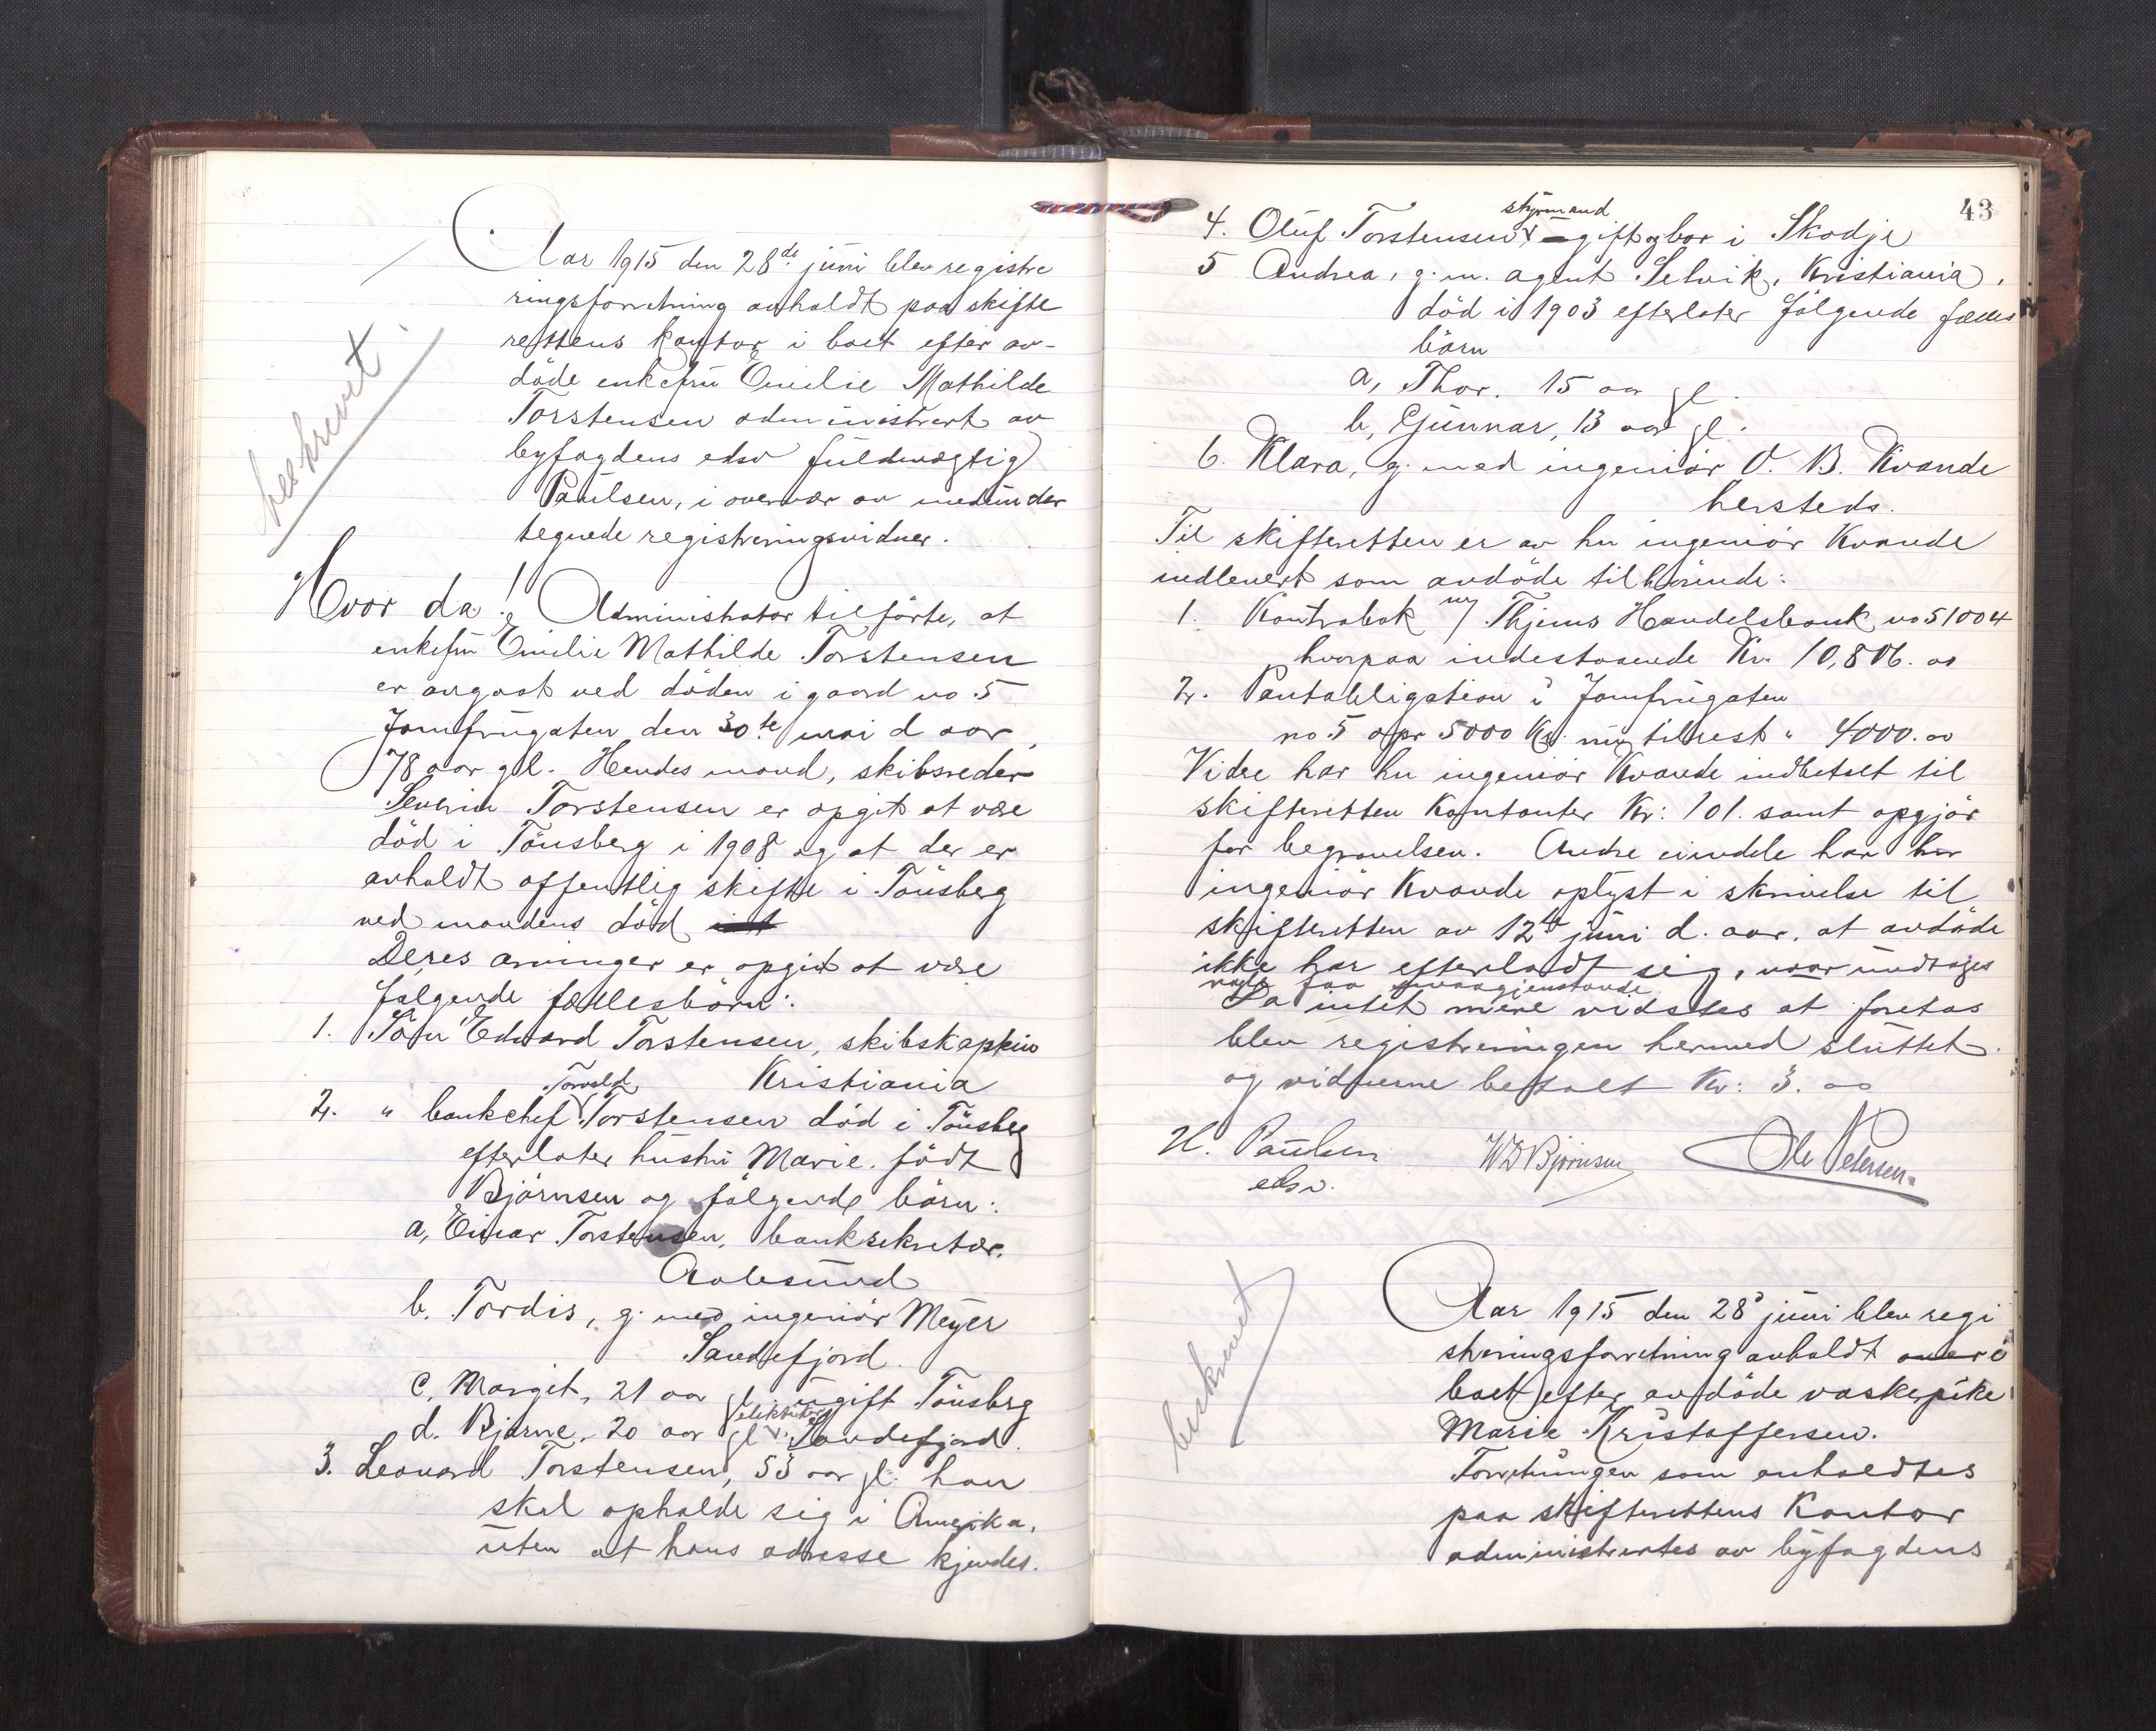 Aar 1915 den 28de juni blev registre
ringsforretning avholdt paa skifte
rettens kontor i boet efter av-
döde enkefru Emilie Mathilde
Torstensen administrert av
byfogdens edsv fuldmægtig
Paulsen, i overvær av medunder
tegnede registreringsvidner.
beskrevet
Hvor da! Administrator tilförte, at
enkefru Emilie Mathilde Torstensen
er avgaat ved döden i gaard no 5
Jomfrugaten den 30te mai d aar,
78 aar gl. Hendes mand, skibsreder
Severin Torstensen er opgit at være
död i Tönsberg i 1908 og at der er
avholdt offentlig skifte i Tönsberg
ved mandens död
Deres arvinger er opgit at være
følgende fællesbörn:
1. Sön Edvard Torstensen, skibskaptein
Kristiania
Torvald
2. " bankchef Torstensen död i Tönsberg
efterlater hustru Marie. födt
Björnsen og følgende börn:
a, Einar Torstensen, banksekretær.
Aalesund
b. Tordis, g. med ingeniör Meyer
Sandefjord.
c, Margit, 21 aar gl ugift Tönsberg
d. Bjarne, 20 aar gl. Sandefjord.
3. Leonard Torstensen, 53 aar gl. han
skal opholde sig i Amerika,
uten at hans adresse kjendes.
43
styrmand
4. Oluf Torstensen gift og bor i Skodje
5 Andrea, g. m. agent Selvik, Kristiania,
död i 1903 efterlater følgende fælles
börn
a, Thor. 15 aar gl.
b, Gunnar, 13 aar gl.
6. Klara, g. med ingeniör O. B. Kvande
hersteds.
Til skifteretten er av hr ingeniör Kvande
indlevert som avdöde tilhörende:
1. Kontrabok m/ Thjems Handelsbank no 51004
hvorpaa indestaaende Kr. 10,806. oo
2. Pantobligation i Jomfrugaten
no 5 opr 5000 Kr. nu tilrest " 4000. oo
Videre har hr ingeniör Kvande indbetalt til
skifteretten Kontanter Kr: 101. samt opgjör
for begravelsen. Andre eiendele har hr
ingeniör Kvande oplyst i skrivelse til
skifteretten av 12te juni d. aar. at avdöde
ikke har efterladt sig, naar undtages
nogle faa smaagjenstande.
Da intet mere vidstes at foretas
blev registreringen hermed sluttet.
og vidnerne betalt Kr: 3. oo
H. Paulsen WD Bjørnsen Ole Petersen.
edsv.
beskrevet
Aar 1915 den 28d juni blev regi
streringsforretning avholdt over i
boet efter avdöde vaskepike
Marie Kristoffersen.
Forretningen som avholdtes
paa skifterettens Kontor
administrertes av byfogdens